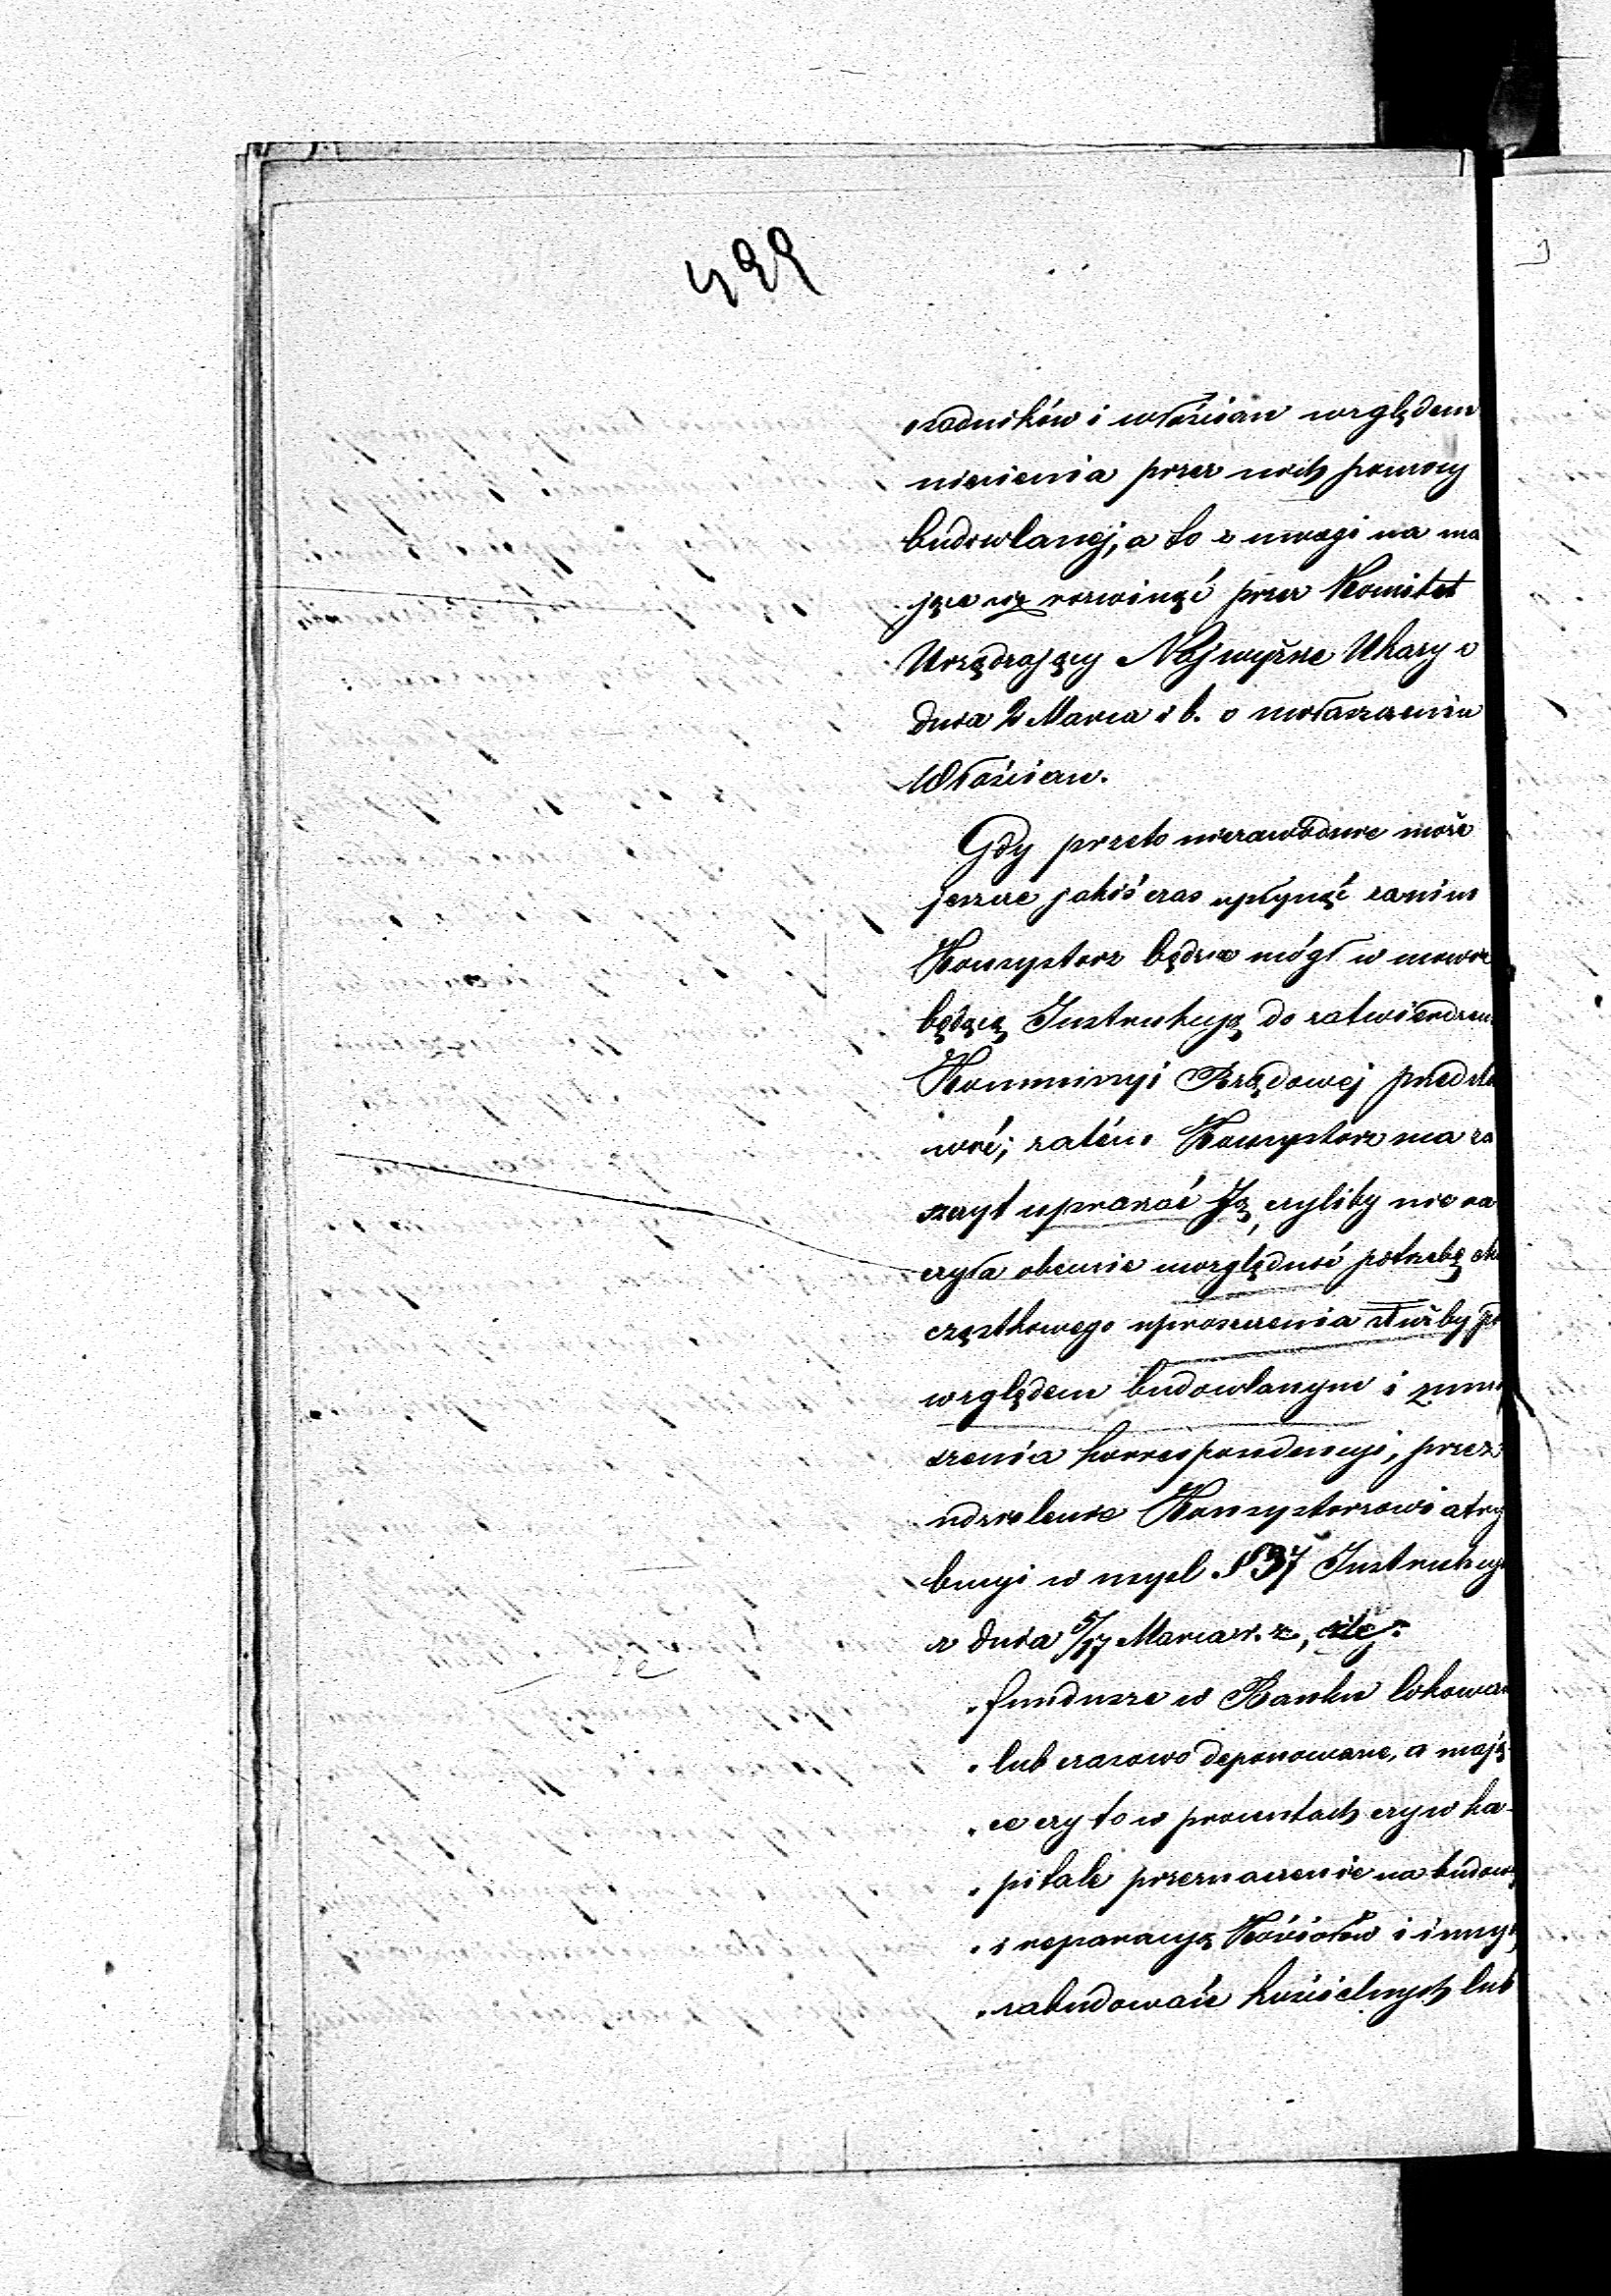 499
osadników i włościan względem
niesienia przez nich pomocy
budowlanej, a to z uwagi na ma
jące się rozwinąć przez Komitet
Urządzający Najwyższe Ukazy z
dnia 2 Marca r b. o uwłaszczeniu
Włościan.
Gdy przeto niezawodnie może
jeszcze jakiś czas upłynąć zanim
Konsystorz będzie mógł w mowie
będącą Instrukcyą do zatwierdzen
Kommissyi Rządowej przedsta
wić; zatém Konsystorz ma za
szczyt upraszać Ją, czyliby nie ra
czyła obecnie uwzględnić potrzebę
cząstkowego uproszczenia służby po
względem budowlanym i zmni
szenia korrespondencyi, przez
udzielenie Konsystorzowi atry
bucyi w myśl § 37 Instrukcyi
z dnia 5/17 Marca r. z.,
„fundusze w Banku lokowan
„lub czasowo deponowane, a mają
„ce czy to w procentach czy w ka-
„pitale przeznaczenie na budowę
„i reparacyą Kościołów i innych
„zabudowań kościelnych lub